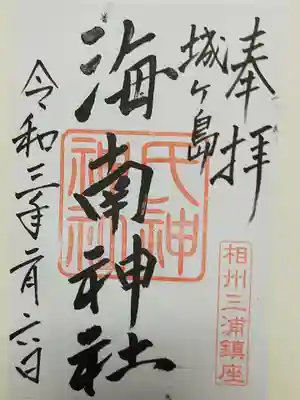 奉拝
城ヶ島
海南神社
令和三年二月六日
氏神
神社
相州三浦鎮座